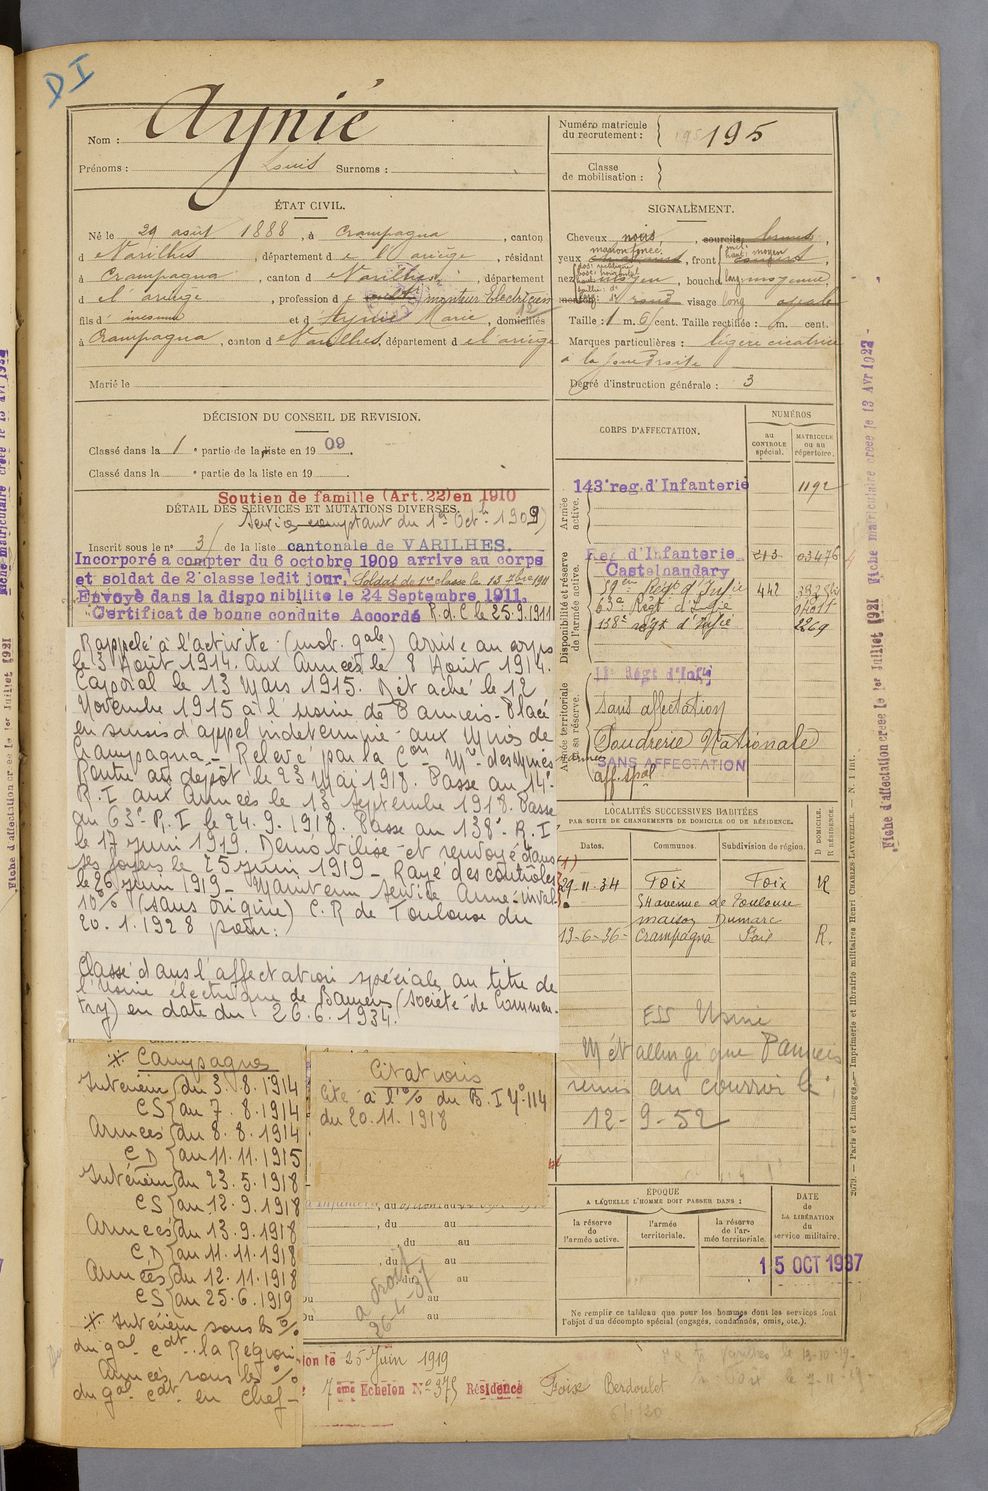 DI
Nom : Aynié
Prénoms : Louis Surnoms :
Numéro matricule
du recrutement : 195
Classe
de mobilisation :
ÉTAT CIVIL.
Né le 29 août 1888, à Crampagna, canton
d Varilhes, département de l'Ariège, résidant
à Crampagna, canton d Varilhes, département
d el'ariège, profession d e monteur Electricien
fils d' inconnu et d' Aynié Marie, domiciliés
à Crampagna, canton d Varilhes, département d el'ariège
Marié le
SIGNALEMENT.
Cheveux noirs, sourcils bruns,
marron foncé haut: moyen
yeux, front
nez moyen, bouche moyenne,
visage long ovale
Taille : 1 m. 61 cent. Taille rectifiée : m. cent.
Marques particulières : légère cicatrice
à la joue droite
Degré d'instruction générale : 3
DÉCISION DU CONSEIL DE REVISION.
Classé dans la 1e partie de la liste en 1909.
Classé dans la e partie de la liste en 19
Soutien de famille (Art. 22) en 1910
DÉTAIL DES SERVICES ET MUTATIONS DIVERSES.
Service comptant du 1er Oct. 1909
Inscrit sous le n° 31 de la liste cantonale de VARILHES.
Incorporé à compter du 6 octobre 1909 arrive au corps
et soldat de 2e classe ledit jour. Soldat de 1re classe le 13 7bre 1911
Envoyé dans la disponibilité le 24 Septembre 1911.
Certificat de bonne conduite Accordé R.d.C le 25.9.1911
Rappelé à l'activité (mob. gale) Arrivé au corps
le 3 Août 1914. Aux Armées le 8 Août 1914.
Caporal le 13 Mars 1915. Détaché le 12
Novembre 1915 à l'usine de Pamiers - Placé
en sursis d'appel indéterminé aux Mines de
Crampagna - Relevé par la Con Mre des Mines
Rentré au dépôt le 23 Mai 1918. Passé au 14e
R.I aux Armées le 13 Septembre 1918. Passé
au 63e R.I le 24.9.1918. Passé au 138e R.I
le 17 juin 1919. Démobilisé et renvoyé dans
ses foyers le 25 juin 1919 - Rayé des contrôles
le 26 juin 1919 - Maintenu Service Armé - inval.
10% (sans origine) C.R de Toulouse du
20.1.1928 pour :
Classé dans l'affectation spéciale au titre de
l'Usine électrique de Pamiers (Société de Commen-
try) en date du 26.6.1934.
CORPS D'AFFECTATION.
NUMÉROS
AU CONTROLE spécial.
MATRICULE ou au répertoire.
Armée active.
143e reg. d'Infanterie 1192
Disponibilité et réserve de l'armée active.
Reg d'Infanterie 213 03476
Castelnaudary
59ème Régt d'Infie 442
63e Régt d'Infie
138e régt d'Infie 2269
Armée territoriale et sa réserve.
Régt d'Infie
sans affectation
Poudrerie Nationale
SANS AFFECTATION
aff. spal
LOCALITÉS SUCCESSIVES HABITÉES
PAR SUITE DE CHANGEMENTS DE DOMICILE OU DE RÉSIDENCE.
Dates. Communes. Subdivision de région. D DOMICILE. R RÉSIDENCE.
29-11-34 Foix Foix R
54 avenue de Toulouse
maison Dumarc
13-6-36 - Crampagna Foix R.
ESS Usine
Métallurgique Pamiers
remis au courrier le
12-9-52
* Campagnes
Intérieur du 3.8.1914
CS au 7.8.1914
Armées du 8.8.1914
CD au 11.11.1915
Intérieur du 23.5.1918
CS au 12.9.1918
Armées du 13.9.1918
CD au 11.11.1918
Armées du 12.11.1918
CS au 25.6.1919
* Intérieur sous les %
du gal cdt la Région
Armées sous les %
du gal cdt en chef -
Citations
Cité à l'% du B.I N° 114
du 20.11.1918
, du au
, du au
, du au
au
au
ÉPOQUE
A LAQUELLE L'HOMME DOIT PASSER DANS :
la réserve de l'armée active.
l'armée territoriale.
la réserve de l'armée territoriale.
DATE
de
LA LIBÉRATION
du
service militaire.
15 OCT 1937
Ne remplir ce tableau que pour les hommes dont les services font
l'objet d'un décompte spécial (engagés, condamnés, omis, etc.).
le 25 Juin 1919
7ème Echelon N° 375 Résidence Foix Berdoulet
Fiche d'affectation créée le 1er Juillet 1921 Fiche matriculaire créée le 13 Avr 1922
2079. — Paris et Limoges. — Imprimerie et librairie militaires Henri CHARLES-LAVAUZELLE. — N. 1 int.